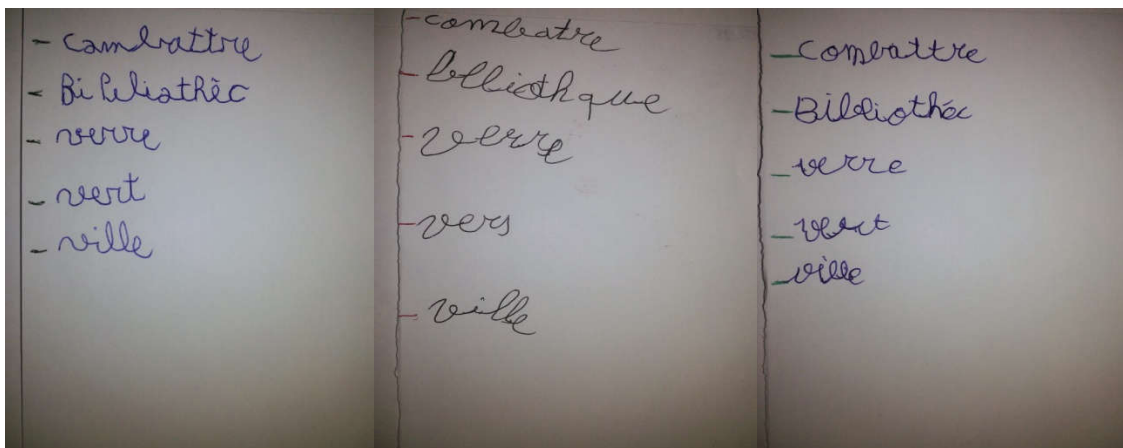 - combattre
- Bibliathèc
- verre
- vert
- ville
- combatre
- bibliothque
- verre
- vers
- ville
- combattre
- Bibliothéc
- verre
- vert
- ville